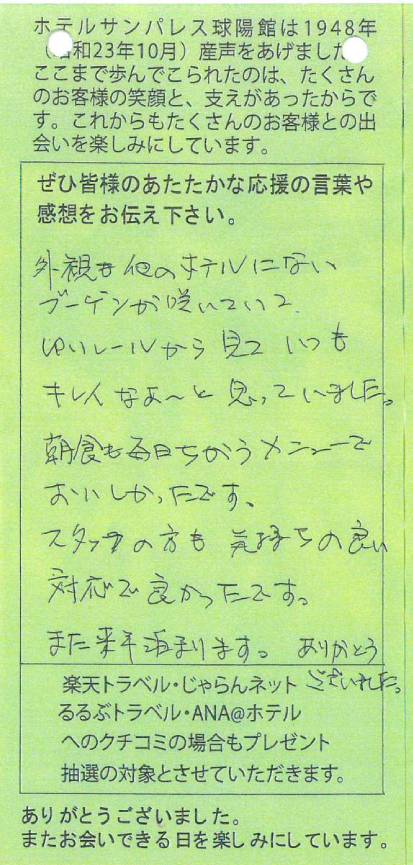 ホテルサンパレス球陽館は1948年
（昭和23年10月）産声をあげました
ここまで歩んでこられたのは、たくさん
のお客様の笑顔と、支えがあったからで
す。これからもたくさんのお客様との出
会いを楽しみにしています。
ぜひ皆様のあたたかな応援の言葉や
感想をお伝え下さい。
外観も他のホテルにない
ブーゲンが咲いていて、
ゆいレールから見ていつも
キレイなぁ〜と思っていました。
朝食も毎日ちがうメニューで
おいしかったです。
スタッフの方も気持ちの良い
対応で良かったです。
また来年泊まります。ありがとう
ございました。
楽天トラベル・じゃらんネット
るるぶトラベル・ANA@ホテル
へのクチコミの場合もプレゼント
抽選の対象とさせていただきます。
ありがとうございました。
またお会いできる日を楽しみにしています。